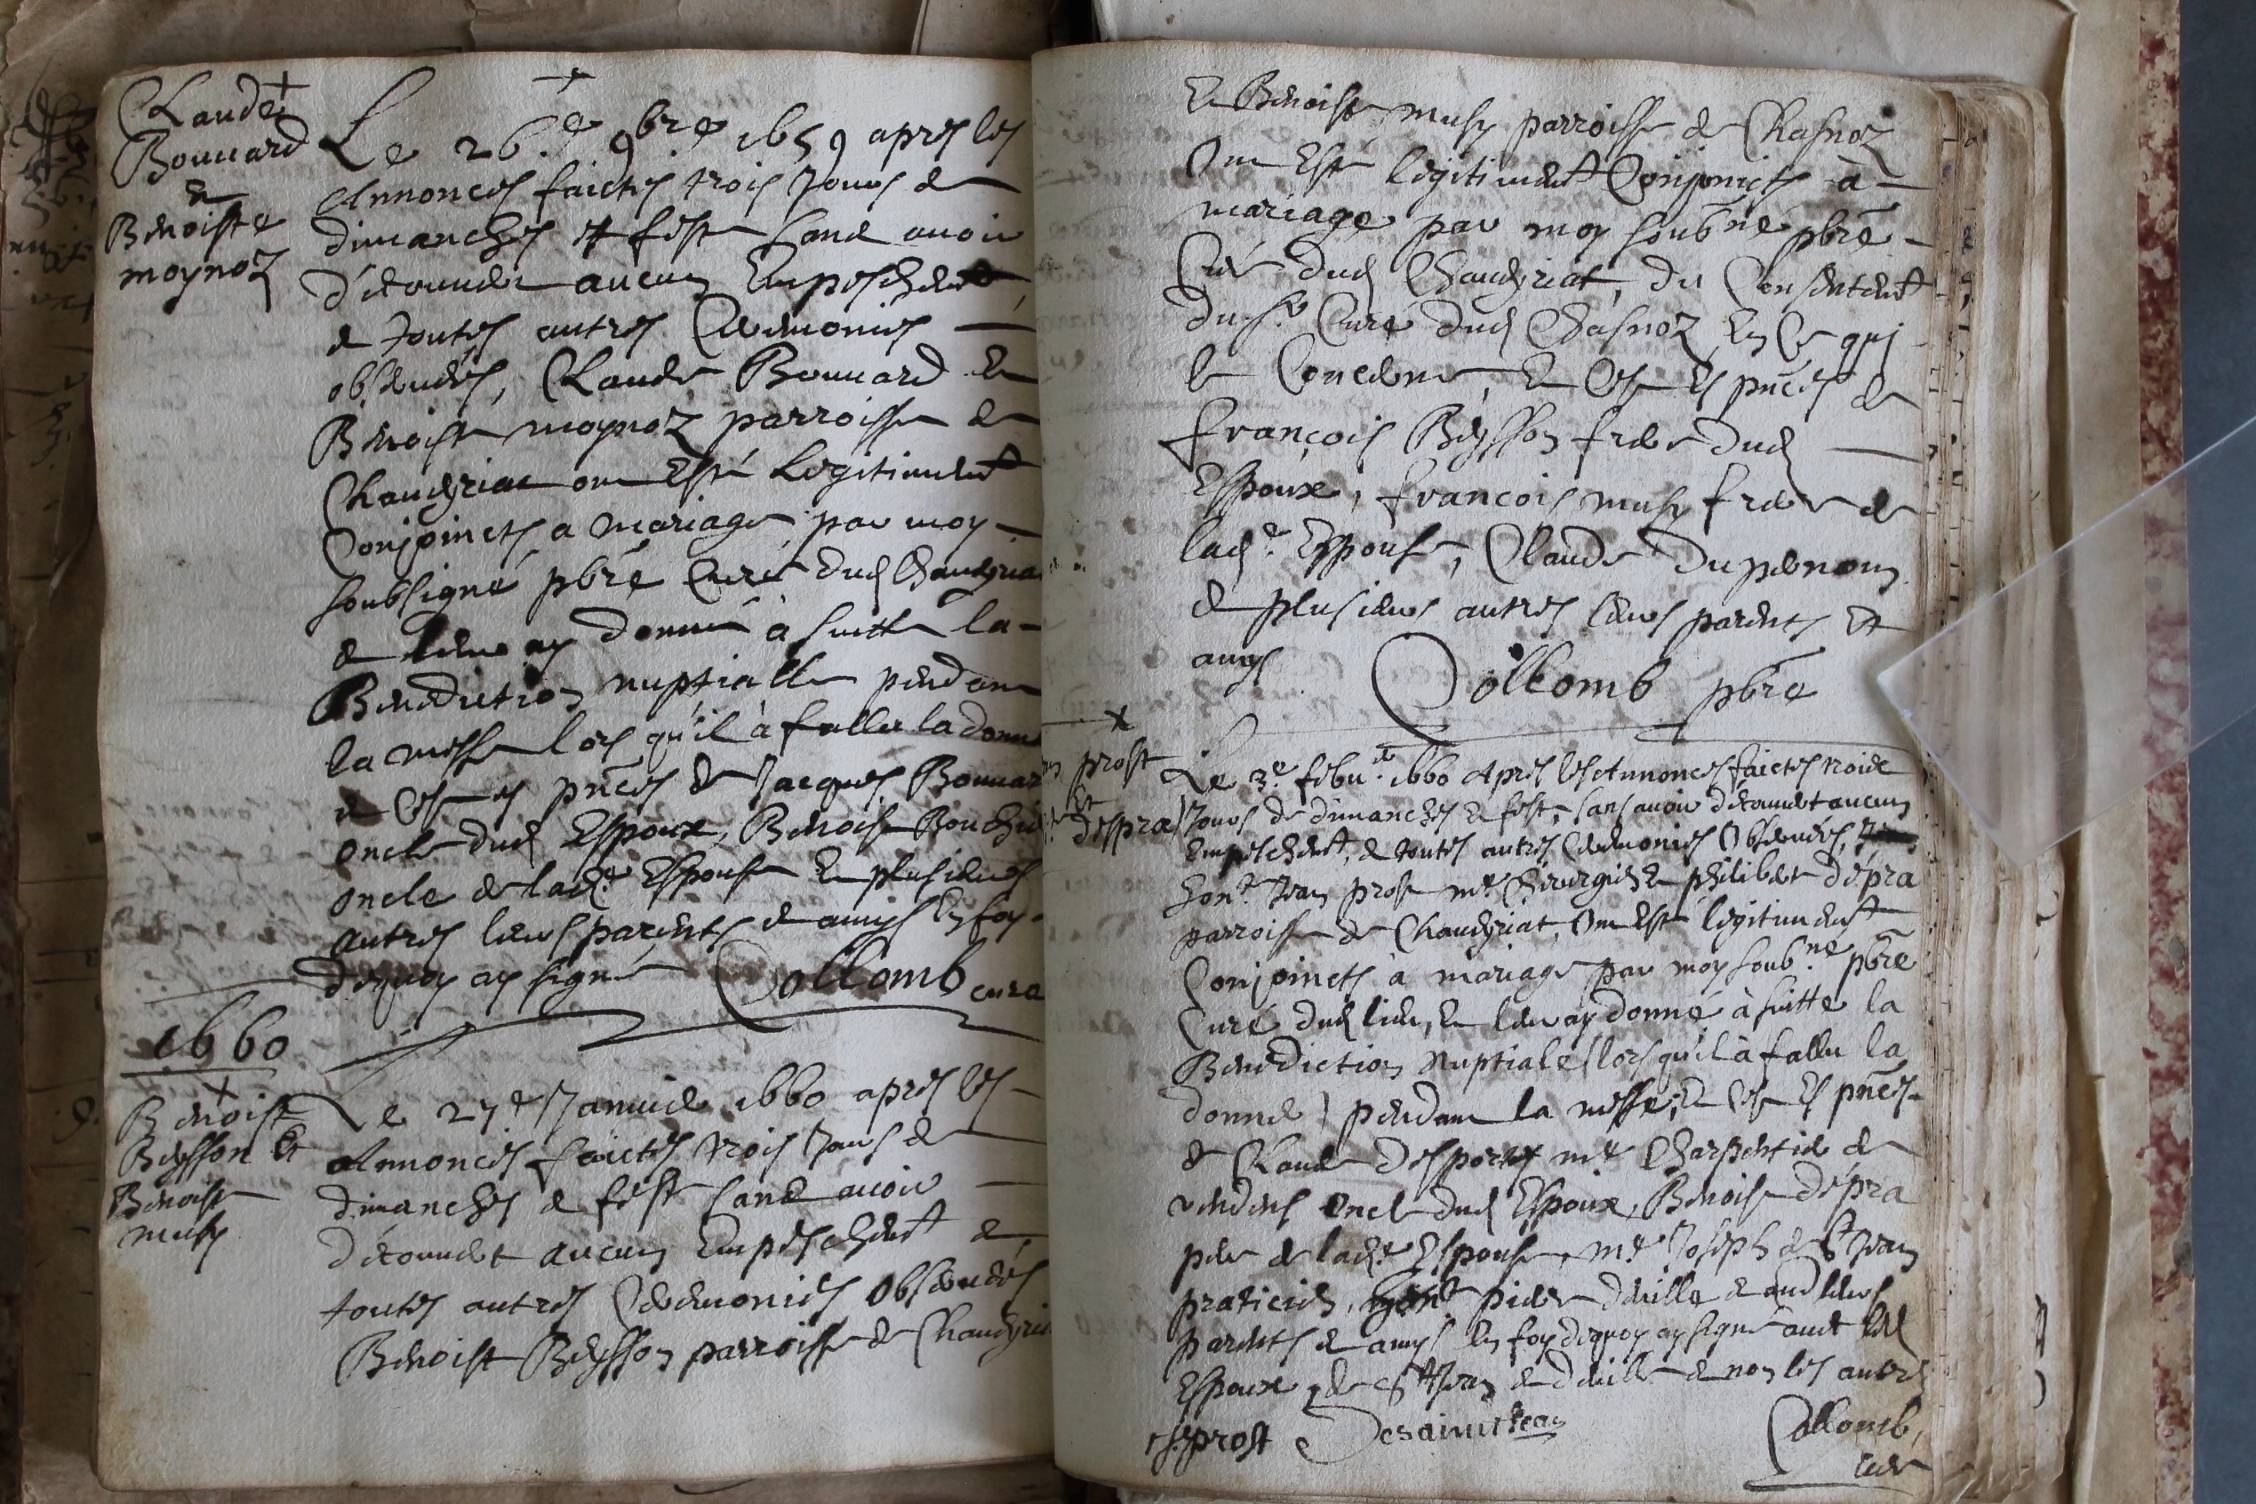 Claude
Bouuard
et
Benoiste
moynoz
Le 26.e 9bre 1659 apres les
Annonces faictes trois Jours de
dimanches et feste sans auoir
décounert aucun Empeschemt
et toutes autres Ceremonies
obseruées, Claude Bouuard et
Benoiste moynoz parroisse de
Chaueyriat ont Esté Legitimemt
Conjoincts a Mariage par moy
soubsigné pbre Curé dud Chaueyria
et leur ay donné à suitte la
Benediction nuptialle pendant
la messe lors qu'il à fallu la donner
et ce es pnces de Jacques Bouuar
oncle dud Espoux, Benoist Bouchi
oncle de lade Espouse Et plusieurs
autres leurs parents et amys En foy
dequoy ay signé Collomb cure
1660
Benoist
Beysson Et
Benoiste
musy
Le 27e Januier 1660 apres les
Annonces faictes trois Jours de
dimanches et feste sans auoir
décounert aucun Empeschemt et
toutes autres Ceremonies Obseruées
Benoist Beysson parroisse de Chaueyria
Et Benoiste musy parroisse de Chasnoz
Ont Esté legitimemt Conjoincts à
mariage par moy soubné pbre
Curé dud Chaueyriat, du Consentemt
du sr Curé dud Chasnoz En Ce qui
le Concerne, Et Ce Es pnces de
françois Beysson frere dud
Espoux, françois musy frere de
lade Espouse, Claude Dupernom
et plusieurs autres leurs parents Et
amys
Collomb pbre
prost
Et
despra
Le 3e febur. 1660 Apres les Annonces faictes trois
Jours de dimanches Et feste, sans auoir décounert aucun
Empeschemt, et toutes autres Ceremonies Obseruées,
hont Jean prost me Chirurgien Et philiberte dépra
parroisse de Chaueyriat, Ont Esté légitimemt
Conjoincts à mariage par moy soubné pbre
Curé dud lieu, Et leur ay donné à suitte la
Benediction Nuptiale (lors qu'il à fallu la
donner) pendant la messe, Et Ce Es pnces
de Claude Desportes me Charpentier de
Oncle dud Espoux, Benoist dépra
pere de lade Espouse, me Joseph de St Jean
praticien, pierre déuille et aud leurs
parents et amys En foy dequoy ay signé auec led
Espoux, de St Jean et déuille et non les autres
prost Desainctjean Collomb,
Curé